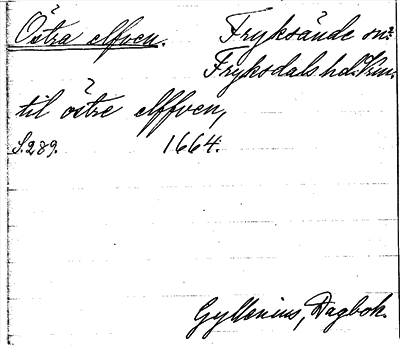 Östra elfven. Fryksände sn:
Fryksdals hd. Vrm.
til östre elffven,
S. 289. 1664.
Gyllenius, Dagbok.